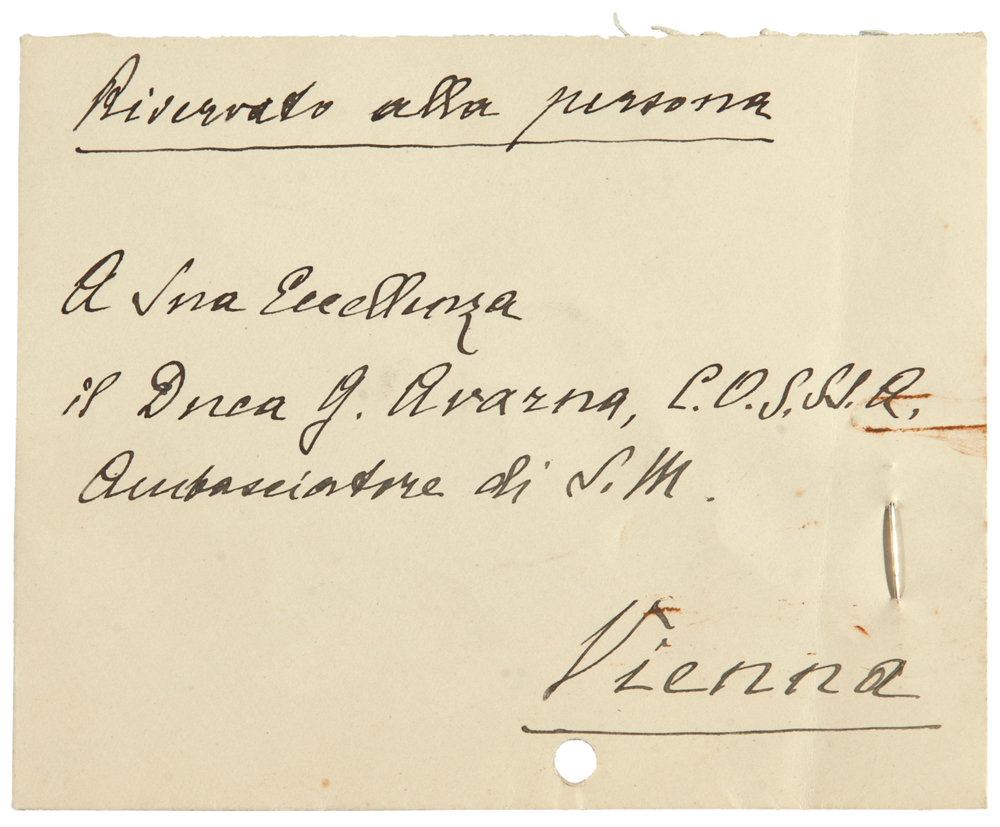 Riservato alla persona
A Sua Eccellenza
il Duca G. Avarna, C.O.S.SS.A.
Ambasciatore di S. M.
Vienna